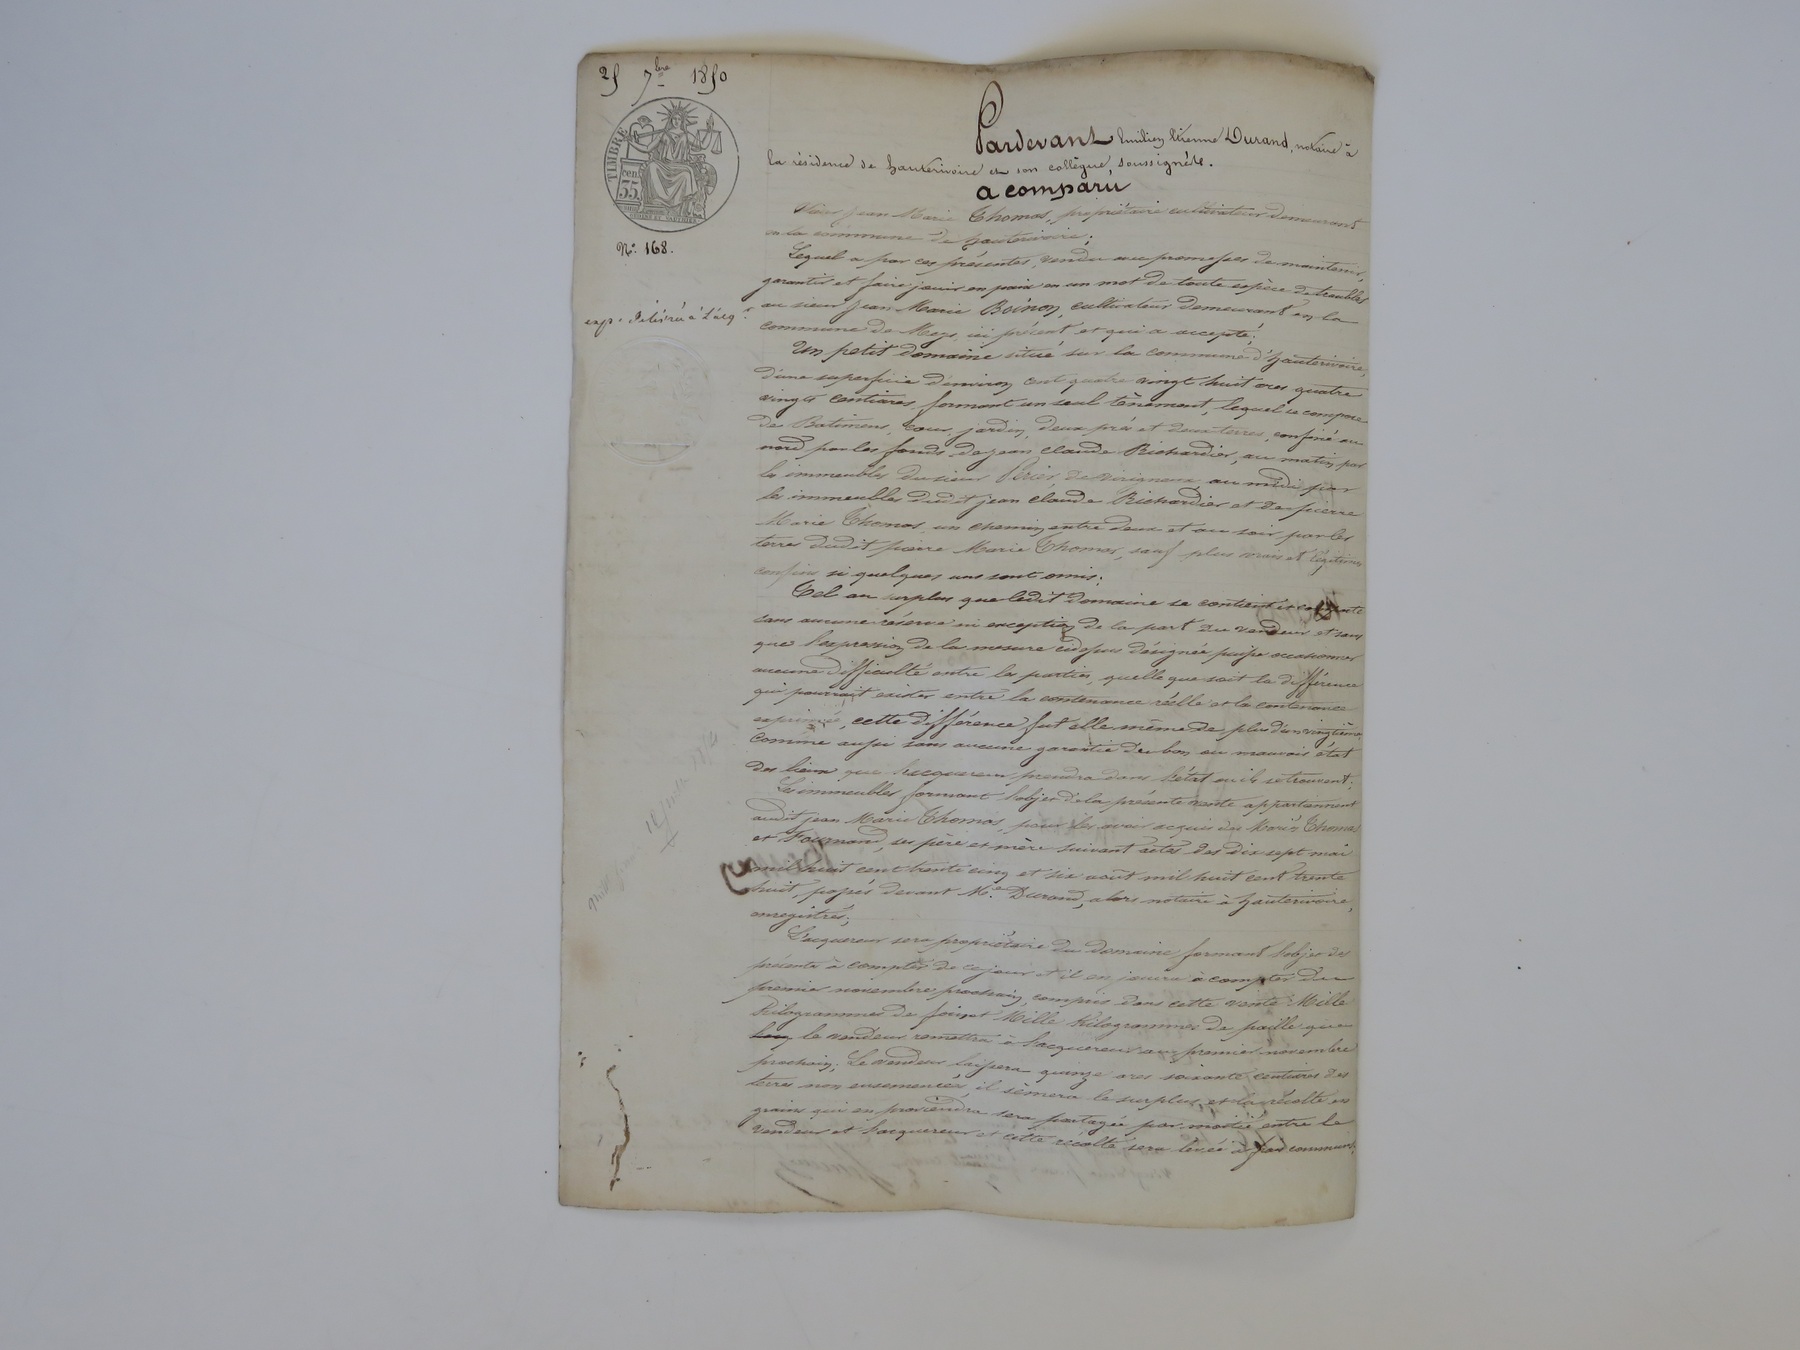 25 7bre 1850
TIMBRE
cen. 35
N.º 168.
exp. délivrée à l'acq.r
Pardevant Emilien Etienne Durand, notaire à
la résidence de hauterivoire et son collègue, soussignés.
a comparu
Sieur Jean Marie Thomas, propriétaire cultivateur demeurant
en la commune de hauterivoire;
Lequel a par ces présentes, vendu avec promesses de maintenir,
garantir et faire jouir en paix en un mot de toute espèce de troubles
au sieur Jean Marie Boinon, cultivateur demeurant en la
commune de Meys, ici présent et qui a accepté;
Un petit domaine situé sur la commune d'hauterivoire,
d'une superficie d'environ cent quatre vingt huit ares quatre
vingts centiares, formant un seul tènement, lequel se compose
de Batimens, cour, jardin, deux prés et deux terres, confiné au
nord par les fonds de jean claude Richardier, au matin par
les immeubles du sieur Périer de virigneux, au midi par
les immeubles dudit jean claude Richardier et de pierre
Marie Thomas, un chemin entre deux et au soir par les
terres dudit pierre Marie Thomas, sauf plus vrais et légitimes
confins si quelques uns sont omis;
Tel au surplus que ledit domaine se contient et comporte
sans aucune réserve ni exception de la part du vendeur et sans
que l'expression de la mesure cidessus désignée puisse occasionner
aucune difficulté entre les parties, quelle que soit la différence
qui pourrait exister entre la contenance réelle et la contenance
exprimée, cette différence fut elle même de plus d'un vingtième
comme aussi sans aucune garantie du bon ou mauvais état
des lieux que l'acquéreur prendra dans l'état où ils se trouvent;
Les immeubles formant l'objet de la présente vente appartiennent
audit jean Marie Thomas, pour les avoir acquis des Mariés Thomas
et Fournand, ses père et mère suivant actes des dix sept mai
mil huit cent trente cinq et six août mil huit cent trente
huit, passés devant M.e Durand, alors notaire à hauterivoire,
enregistrés;
L'acquéreur sera propriétaire du domaine formant l'objet des
présentes à compter de ce jour et il en jouira à compter du
premier novembre prochain, compris dans cette vente Mille
Kilogrammes de foin et Mille Kilogrammes de paille que
le vendeur remettra à l'acquéreur au premier novembre
prochain; Le vendeur laissera quinze ares soixante centiares des
terres non ensemencées, il sèmera le surplus, et la récolte en
grains qui en proviendra sera partagée par moitié entre le
vendeur et l'acquéreur et cette récolte sera levée à frais communs